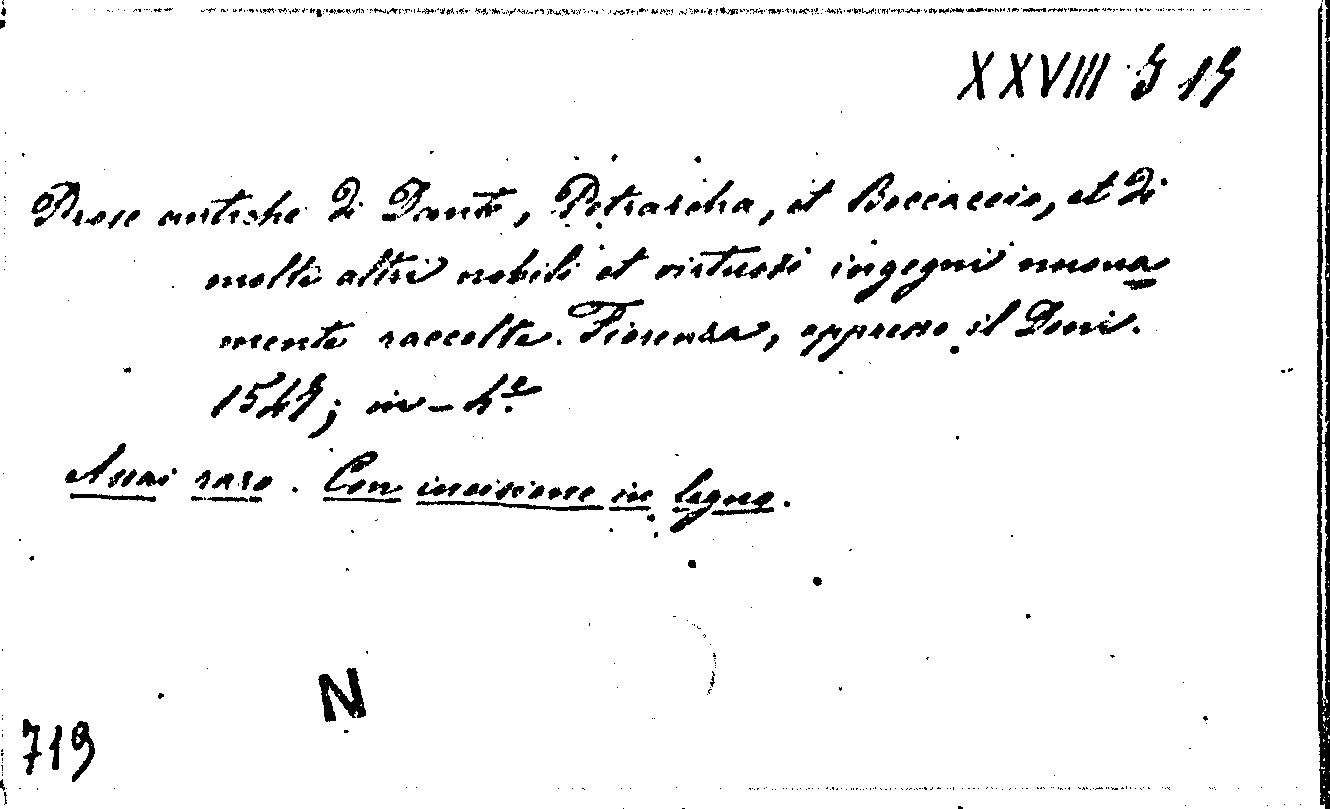 XXVIII 5 15
Prose antiche di Dante, Petrarcha, et Boccaccio, et di
molti altri nobili et virtuosi ingegni nuova
mente raccolte. Fiorenza, appresso il Doni.
1547; in-4º
Assai raro. Con incisione in legno.
N
719